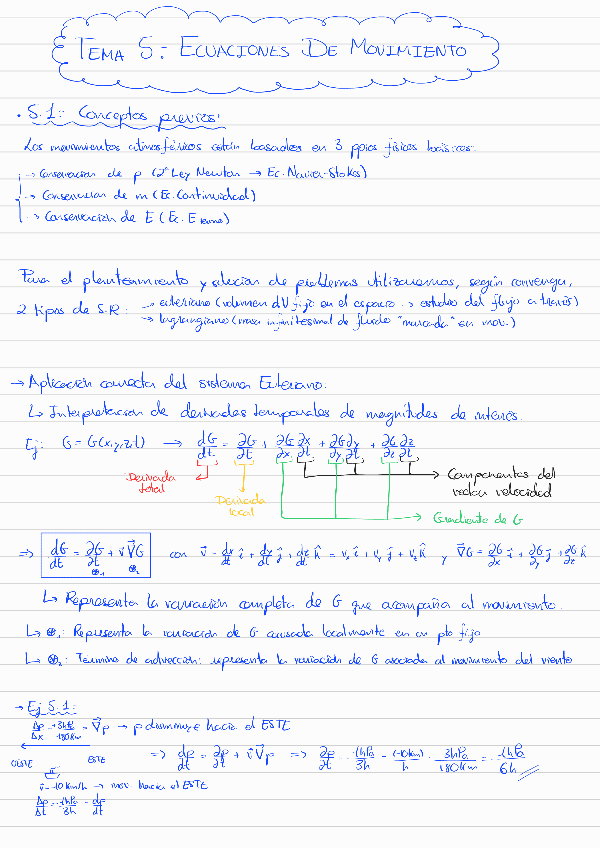 TEMA 5: ECUACIONES DE MOVIMIENTO
• 5.1: Conceptos previos:
Los movimientos atmosféricos están basados en 3 ppios físicos básicos:
→ Conservación de p (2ª Ley Newton → Ec. Navier-Stokes)
→ Conservación de m (Ec. Continuidad)
→ Conservación de E (Ec. E térmo)
Para el planteamiento y solución de problemas utilizaremos, según convenga,
2 tipos de S.R: → euleriano (volumen dV fijo en el espacio → estudio del flujo a través)
→ lagrangiano (masa infinitesimal de fluido "marcada" en mov.)
→ Aplicación correcta del sistema Euleriano.
↳ Interpretación de derivadas temporales de magnitudes de interés.
Ej: G = G(x,y,z,t) → dG/dt = ∂G/∂t + ∂G/∂x ∂x/∂t + ∂G/∂y ∂y/∂t + ∂G/∂z ∂z/∂t
Derivada total
Derivada local
Componentes del
vector velocidad
Gradiente de G
⇒ dG/dt = ∂G/∂t + v⃗ ∇⃗G con v⃗ = dx/dt î + dy/dt ĵ + dz/dt k̂ = vx î + vy ĵ + vz k̂ y ∇⃗G = ∂G/∂x î + ∂G/∂y ĵ + ∂G/∂z k̂
⊕1 ⊕2
↳ Representa la variación completa de G que acompaña al movimiento.
↳ ⊕1: Representa la variación de G causada localmente en un pto fijo
↳ ⊕2: Termino de advección: representa la variación de G asociada al movimiento del viento
→ Ej 5.1:
Δp/Δx = +3hPa/180km = ∇⃗p → p disminuye hacia el ESTE
⇒ dp/dt = ∂p/∂t + v⃗ ∇⃗p ⇒ ∂p/∂t = -1hPa/3h - (-10km)/h · 3hPa/180km = -1hPa/6h
OESTE ESTE
v = -10km/h → mov. hacia el ESTE
Δp/Δt = -1hPa/3h = dp/dt